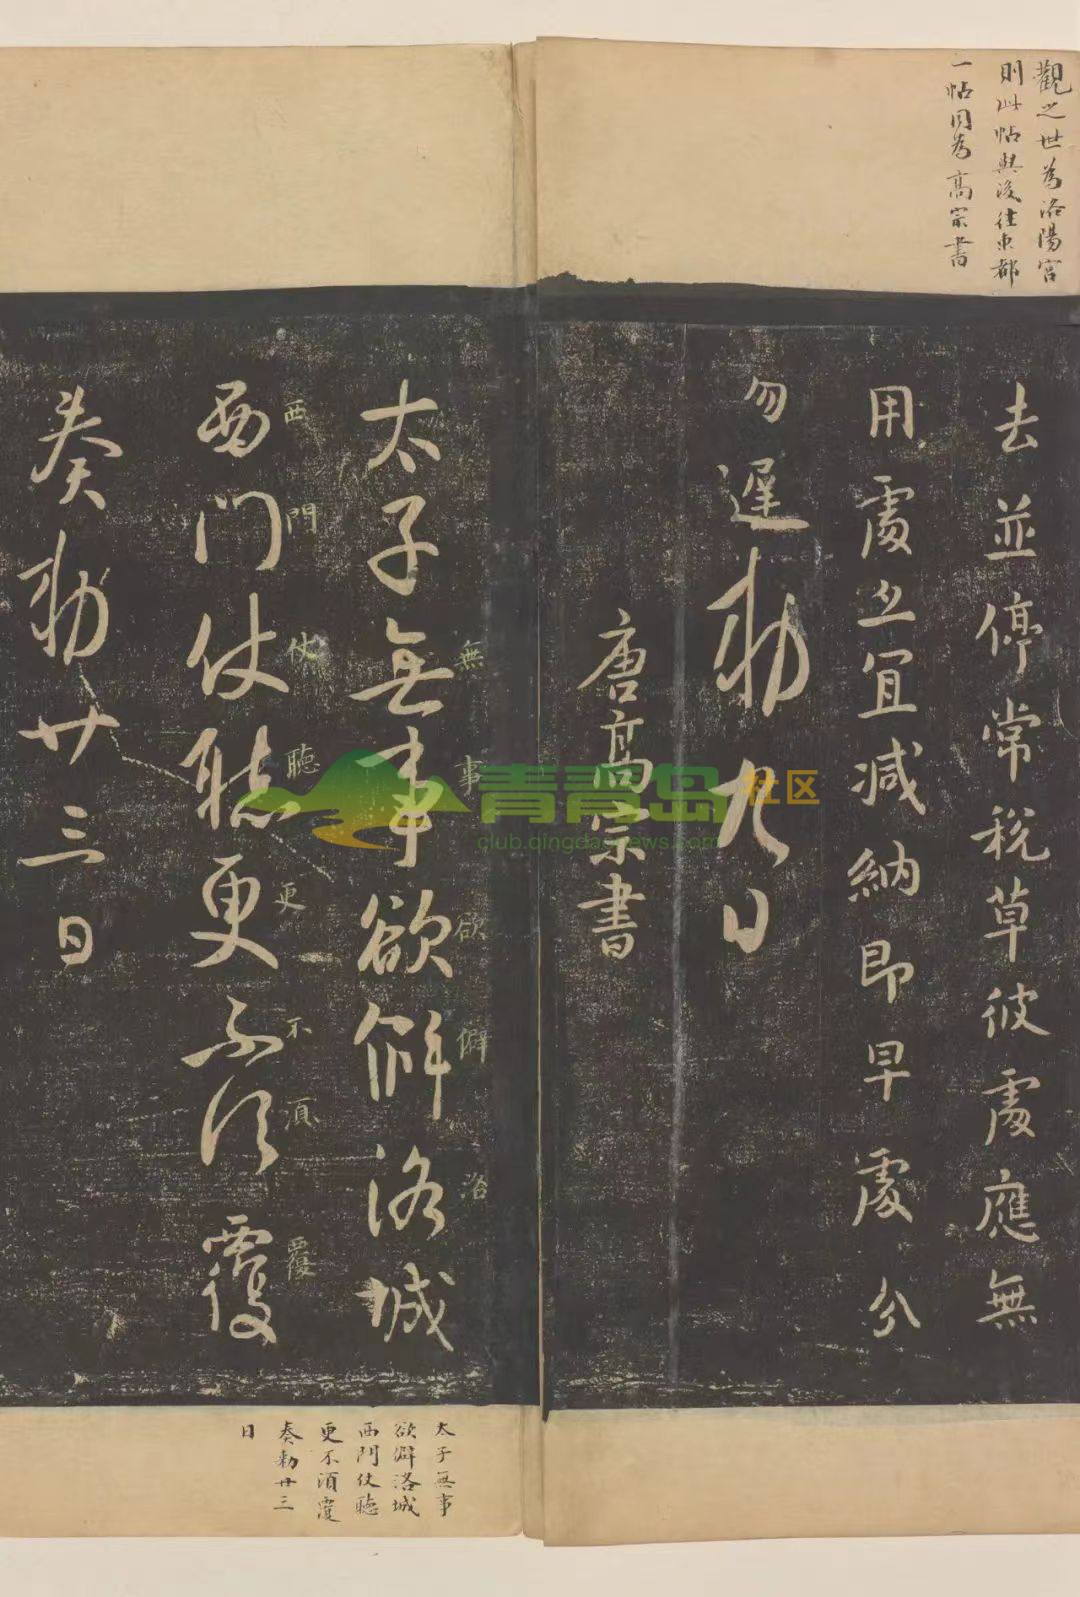 觀之世為洛陽宮
則此帖與後往東都
一帖同為高宗書
去並停常稅草彼處應無
用處亦宜減納即早處分
勿遲勅九日
唐高宗書
太子無事欲僻洛城
無事欲僻洛
西門仗聽更不須覆
西門仗聽更不須覆
奏勅廿三日
太子無事
欲僻洛城
西門仗聽
更不須覆
奏勅廿三
日
青青岛社区
club.qingdaonews.com